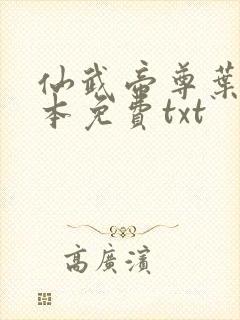 仙武帝尊葉
本免費txt
高廣濱